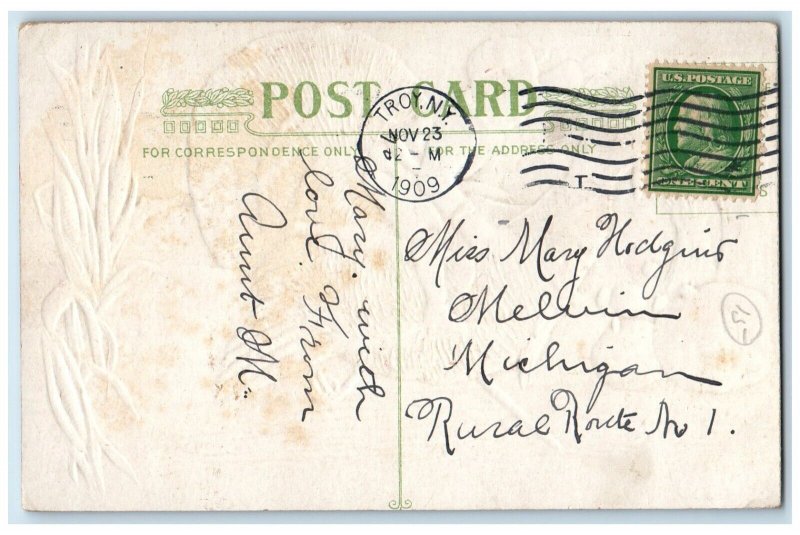 POST CARD
FOR CORRESPONDENCE ONLY
FOR THE ADDRESS ONLY
TROY, N.Y.
NOV 23
12 - M
1909
T
U.S. POSTAGE
ONE CENT
Mary. with
love. From
Aunt M.
Miss Mary Hodgins
Melvin
Michigan
Rural Route No 1.